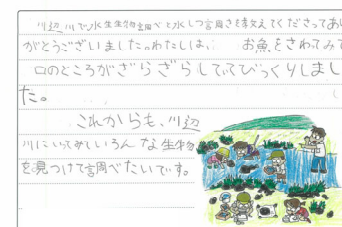 川辺川で水生生物調べと水しつ調さを教えてくださってあり
がとうございました。わたしは、お魚をさわってみて
口のところがざらざらしててびっくりしまし
た。
これからも、川辺
川にいってみていろんな生物
を見つけて調べたいです。